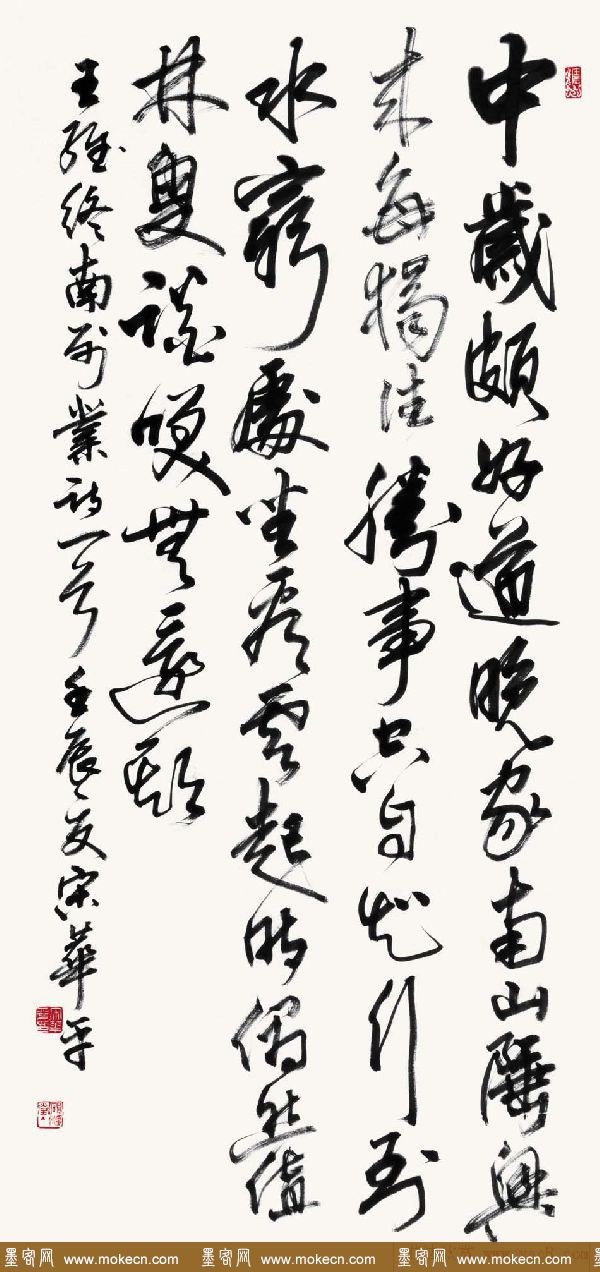 中歲頗好道晚家南山陲興
來每獨往勝事空自知行到
水窮處坐看雲起時偶然值
林叟談咲無還期
王維終南別業詩一首 壬辰夏宋華平
墨客网 www.mokecn.com 墨客网 www.mokecn.com 墨客网 www.mokecn.com